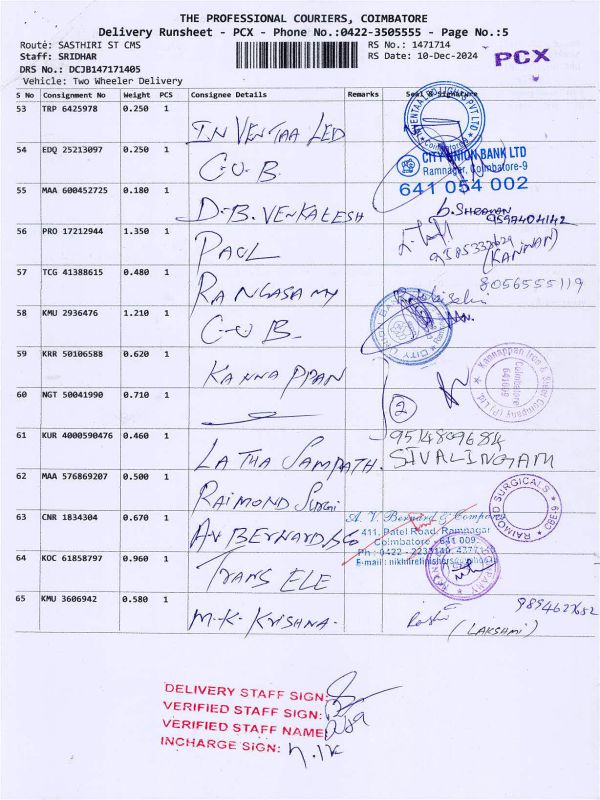 THE PROFESSIONAL COURIERS, COIMBATORE
Delivery Runsheet - PCX - Phone No.:0422-3505555 - Page No.:5
Route: SASTHIRI ST CMS
Staff: SRIDHAR
DRS No.: DCJB147171405
Vehicle: Two Wheeler Delivery
RS No.: 1471714
RS Date: 10-Dec-2024
PCX
S No Consignment No Weight PCS Consignee Details Remarks Seal & Signature
53 TRP 6425978 0.250 1
IN VENTAA LED
54 EDQ 25213097 0.250 1
C-U-B.
CITY UNION BANK LTD
Ramnagar, Coimbatore-9
641 054 002
55 MAA 600452725 0.180 1
D-B. VENKATESH
9597404142
56 PRO 17212944 1.350 1
PAUL
(KANNAN)
57 TCG 41388615 0.480 1
RANGASAMY
8056555119
58 KMU 2936476 1.210 1
C-U-B
59 KRR 50106588 0.620 1
KANNAPPAN
Kannappan Iron & Steel Company (P) Ltd
Coimbatore
641009
60 NGT 50041990 0.710 1
2
61 KUR 4000590476 0.460 1
LATHA SAMPATH.
9514809684
SIVALINGAM
62 MAA 576869207 0.500 1
RAIMOND Surgi
RAIMOND SURGICALS
CBE-9
63 CNR 1834304 0.670 1
AV BERNARD & Co
A. V. Bernard & Company
411, Patel Road, Ramnagar
Coimbatore - 641 009
64 KOC 61858797 0.960 1
TRANS ELE
65 KMU 3606942 0.580 1
M-K- KRISHNA-
(LAKSHMI)
DELIVERY STAFF SIGN:
VERIFIED STAFF SIGN:
VERIFIED STAFF NAME:
INCHARGE SIGN: